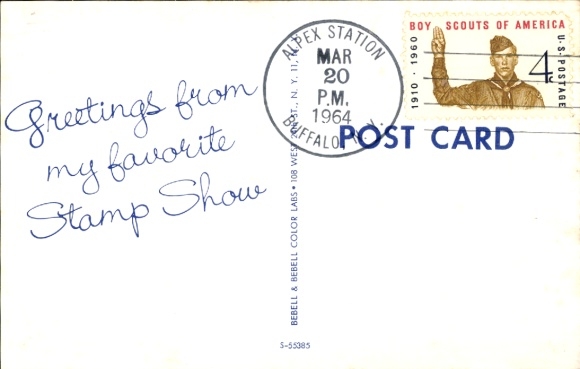 Greetings from
my favorite
Stamp Show
ALPEX STATION
MAR
20
P.M.
1964
BUFFALO, N.Y.
BOY SCOUTS OF AMERICA
1910 · 1960
4c
U·S·POSTAGE
POST CARD
BEBELL & BEBELL COLOR LABS • 108 WEST ST., N. Y. 11, N.Y.
S-55385